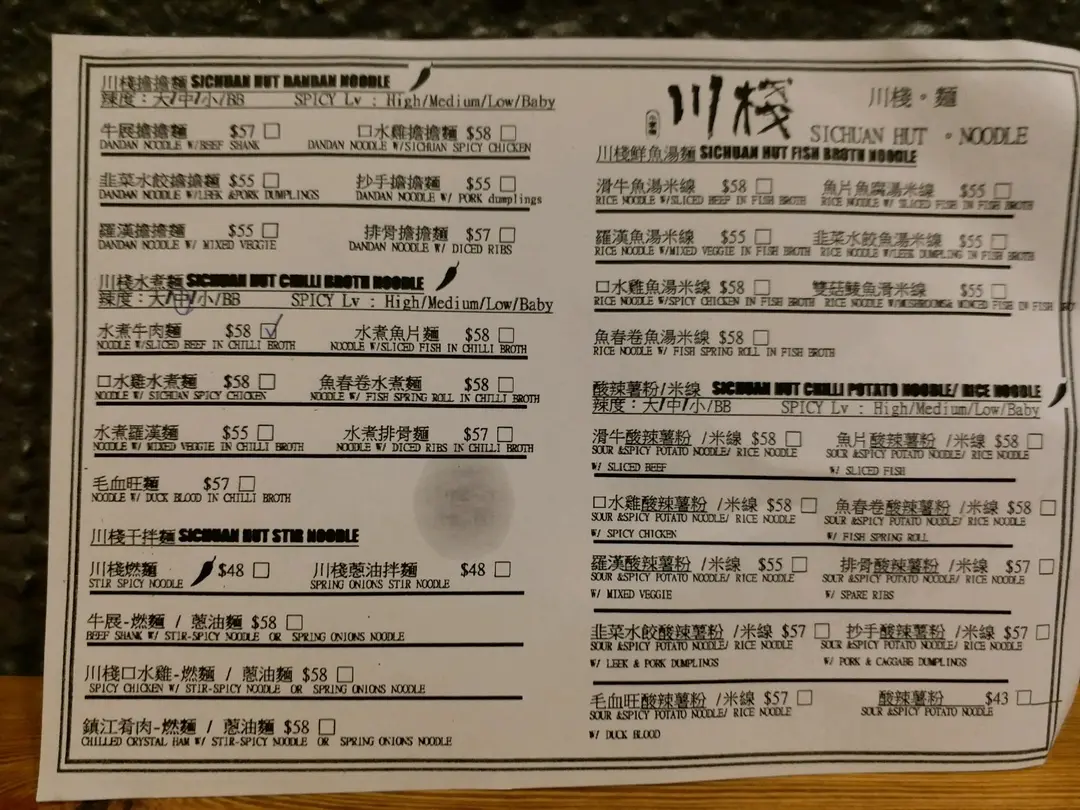 川棧擔擔麵 SICHUAN HUT DANDAN NOODLE
辣度：大/中/小/BB SPICY Lv : High/Medium/Low/Baby
牛展擔擔麵 $57 口水雞擔擔麵 $58
DANDAN NOODLE W/BEEF SHANK DANDAN NOODLE W/SICHUAN SPICY CHICKEN
韭菜水餃擔擔麵 $55 抄手擔擔麵 $55
DANDAN NOODLE W/LEEK &PORK DUMPLINGS DANDAN NOODLE W/ PORK dumplings
羅漢擔擔麵 $55 排骨擔擔麵 $57
DANDAN NOODLE W/ MIXED VEGGIE DANDAN NOODLE W/ DICED RIBS
川棧水煮麵 SICHUAN HUT CHILLI BROTH NOODLE
辣度：大/中/小/BB SPICY Lv : High/Medium/Low/Baby
水煮牛肉麵 $58 水煮魚片麵 $58
NOODLE W/SLICED BEEF IN CHILLI BROTH NOODLE W/SLICED FISH IN CHILLI BROTH
口水雞水煮麵 $58 魚春卷水煮麵 $58
NOODLE W/ SICHUAN SPICY CHICKEN NOODLE W/ FISH SPRING ROLL IN CHILLI BROTH
水煮羅漢麵 $55 水煮排骨麵 $57
NOODLE W/ MIXED VEGGIE IN CHILLI BROTH NOODLE W/ DICED RIBS IN CHILLI BROTH
毛血旺麵 $57
NOODLE W/ DUCK BLOOD IN CHILLI BROTH
川棧干拌麵 SICHUAN HUT STIR NOODLE
川棧燃麵 $48 川棧蔥油拌麵 $48
STIR SPICY NOODLE SPRING ONIONS STIR NOODLE
牛展-燃麵 / 蔥油麵 $58
BEEF SHANK W/ STIR-SPICY NOODLE OR SPRING ONIONS NOODLE
川棧口水雞-燃麵 / 蔥油麵 $58
SPICY CHICKEN W/ STIR-SPICY NOODLE OR SPRING ONIONS NOODLE
鎮江肴肉-燃麵 / 蔥油麵 $58
CHILLED CRYSTAL HAM W/ STIR-SPICY NOODLE OR SPRING ONIONS NOODLE
川棧
川棧。麵
SICHUAN HUT 。NOODLE
川棧鮮魚湯麵 SICHUAN HUT FISH BROTH NOODLE
滑牛魚湯米線 $58 魚片魚腐湯米線 $55
RICE NOODLE W/SLICED BEEF IN FISH BROTH RICE NOODLE W/ SLICED FISH IN FISH BROTH
羅漢魚湯米線 $55 韭菜水餃魚湯米線 $55
RICE NOODLE W/MIXED VEGGIE IN FISH BROTH RICE NOODLE W/LEEK DUMPLING IN FISH BROTH
口水雞魚湯米線 $58 雙菇鯪魚滑米線 $55
RICE NOODLE W/SPICY CHICKEN IN FISH BROTH RICE NOODLE W/MUSHROOMS& MINCED FISH IN FISH
魚春卷魚湯米線 $58
RICE NOODLE W/ FISH SPRING ROLL IN FISH BROTH
酸辣薯粉/米線 SICHUAN HUT CHILLI POTATO NOODLE/ RICE NOODLE
辣度：大/中/小/BB SPICY Lv : High/Medium/Low/Baby
滑牛酸辣薯粉 /米線 $58 魚片酸辣薯粉 /米線 $58
SOUR &SPICY POTATO NOODLE/ RICE NOODLE SOUR &SPICY POTATO NOODLE/ RICE NOODLE
W/ SLICED BEEF W/ SLICED FISH
口水雞酸辣薯粉 /米線 $58 魚春卷酸辣薯粉 /米線 $58
SOUR &SPICY POTATO NOODLE/ RICE NOODLE SOUR &SPICY POTATO NOODLE/ RICE NOODLE
W/ SPICY CHICKEN W/ FISH SPRING ROLL
羅漢酸辣薯粉 /米線 $55 排骨酸辣薯粉 /米線 $57
SOUR &SPICY POTATO NOODLE/ RICE NOODLE SOUR &SPICY POTATO NOODLE/ RICE NOODLE
W/ MIXED VEGGIE W/ SPARE RIBS
韭菜水餃酸辣薯粉 /米線 $57 抄手酸辣薯粉 /米線 $57
SOUR &SPICY POTATO NOODLE/ RICE NOODLE SOUR &SPICY POTATO NOODLE/ RICE NOODLE
W/ LEEK & PORK DUMPLINGS W/ PORK & CAGGABE DUMPLINGS
毛血旺酸辣薯粉 /米線 $57 酸辣薯粉 $43
SOUR &SPICY POTATO NOODLE/ RICE NOODLE SOUR &SPICY POTATO NOODLE
W/ DUCK BLOOD